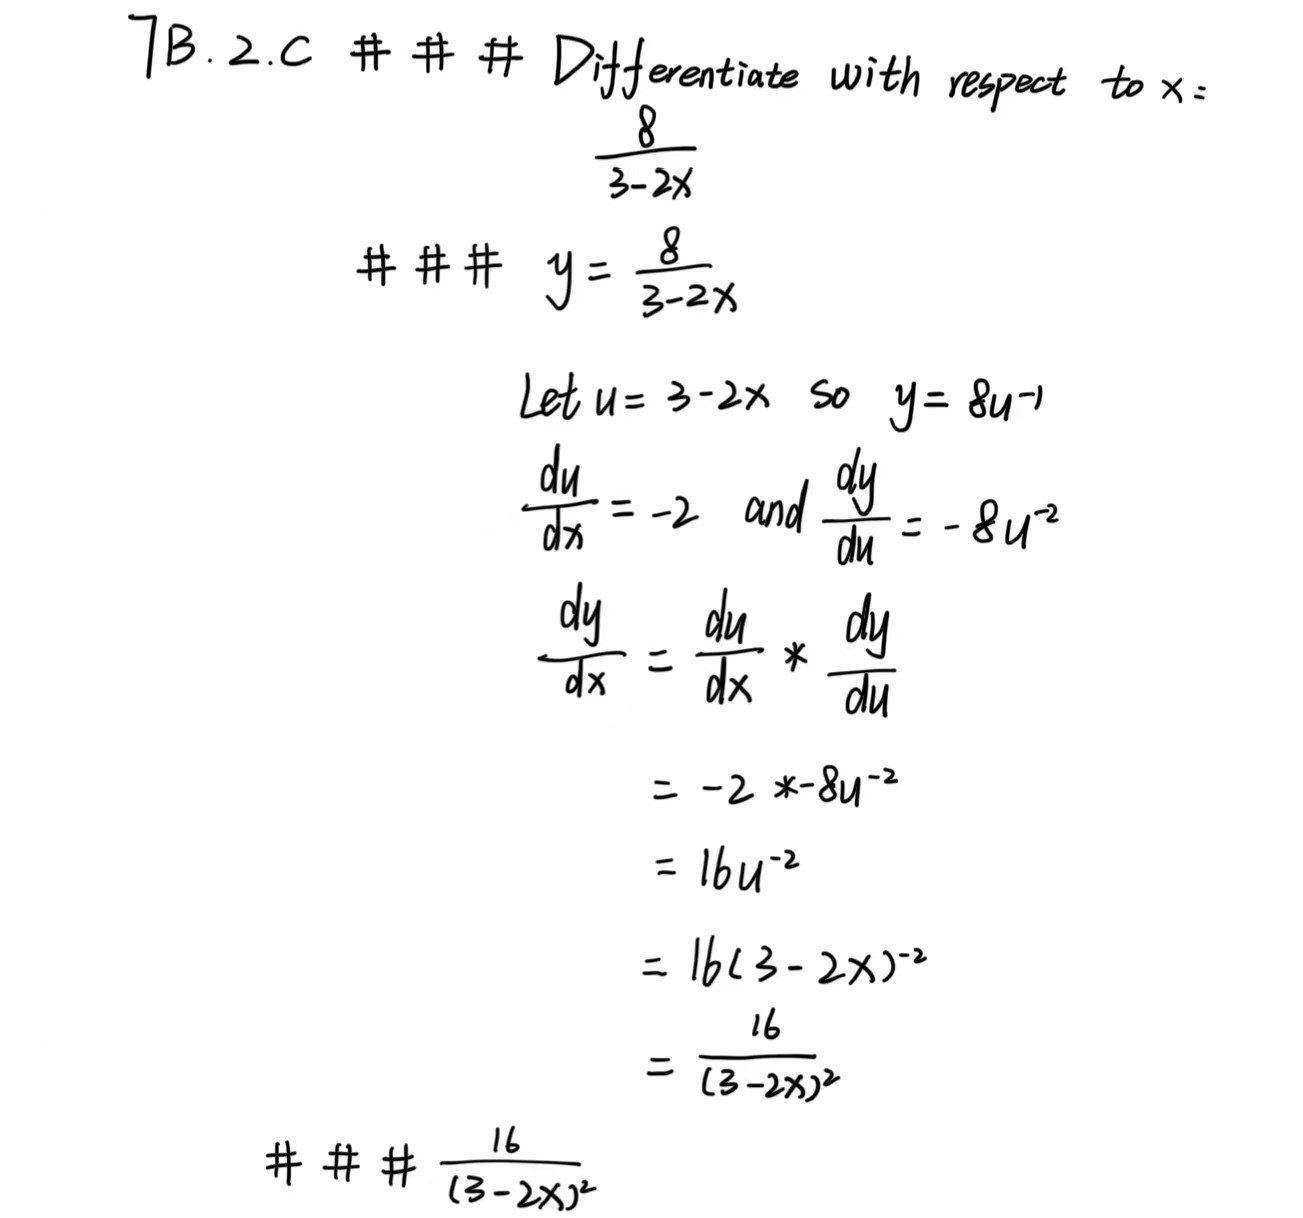 7B.2.C # # # Differentiate with respect to x:
\frac{8}{3-2x}
# # # y = \frac{8}{3-2x}
Let u = 3-2x so y = 8u^{-1}
\frac{du}{dx} = -2 and \frac{dy}{du} = -8u^{-2}
\frac{dy}{dx} = \frac{du}{dx} * \frac{dy}{du}
= -2 * -8u^{-2}
= 16u^{-2}
= 16(3-2x)^{-2}
= \frac{16}{(3-2x)^2}
# # # \frac{16}{(3-2x)^2}